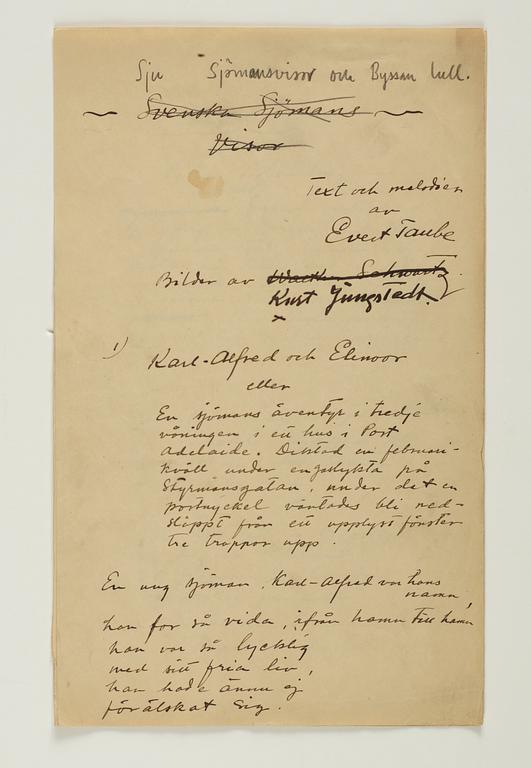 Sju Sjömansvisor och Byssan lull.
~ Svenska Sjömans ~
Visor
Text och melodier
av
Evert Taube
Bilder av Walther Schwartz
Kurt Jungstedt.
x
1) Karl-Alfred och Elinoor
eller
En sjömans äventyr i tredje
våningen i ett hus i Port
Adelaide. Diktad en februari-
kväll under en gaslykta på
Styrmansgatan, under det en
portnyckel väntades bli ned-
släppt från ett upplyst fönster
tre trappor upp.
En ung sjöman, Karl-Alfred var hans
namn,
han for så vida, ifrån hamn till hamn
han var så lycklig
med sitt fria liv,
han hade ännu ej
förälskat sig.